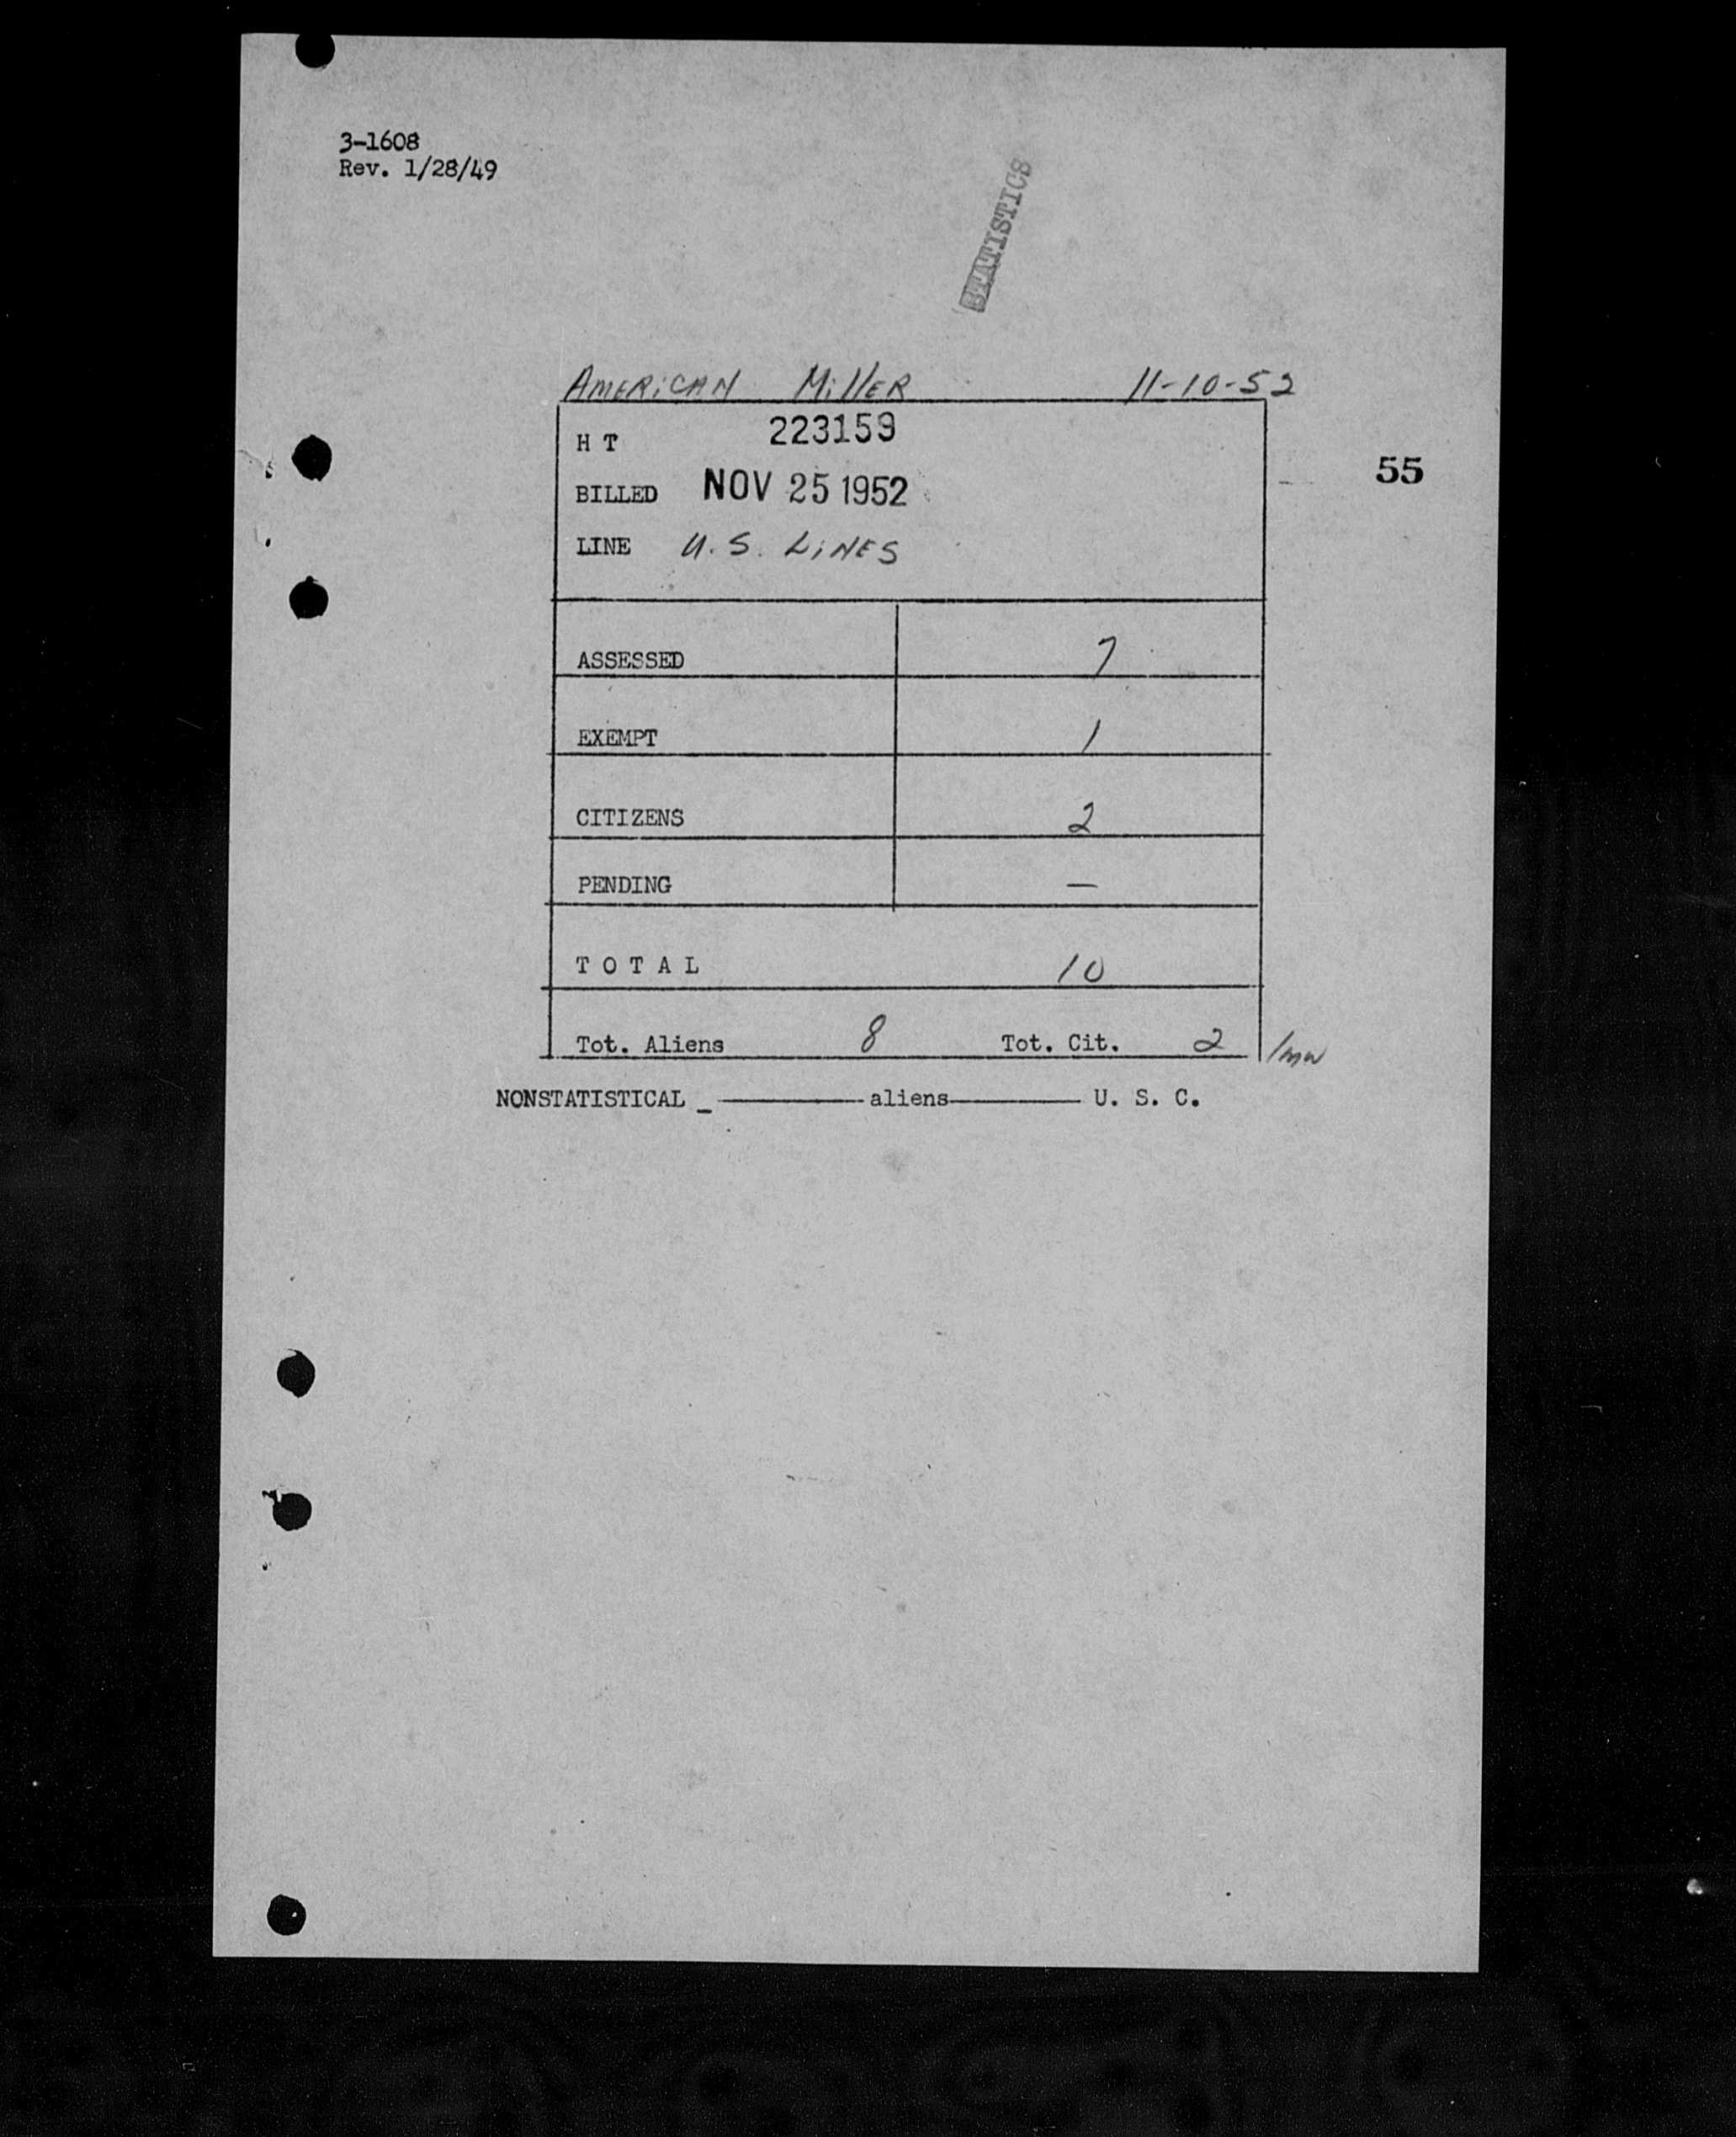 3-1608
Rev. 1/28/49
STATISTICS
AMERICAN MillER 11-10-52
H T 223159
55
BILLED NOV 25 1952
LINE U.S. LINES
ASSESSED 7
EXEMPT 1
CITIZENS 2
PENDING —
T O T A L 10
Tot. Aliens 8 Tot. Cit. 2 /mw
NONSTATISTICAL _ ———— aliens ———— U. S. C.